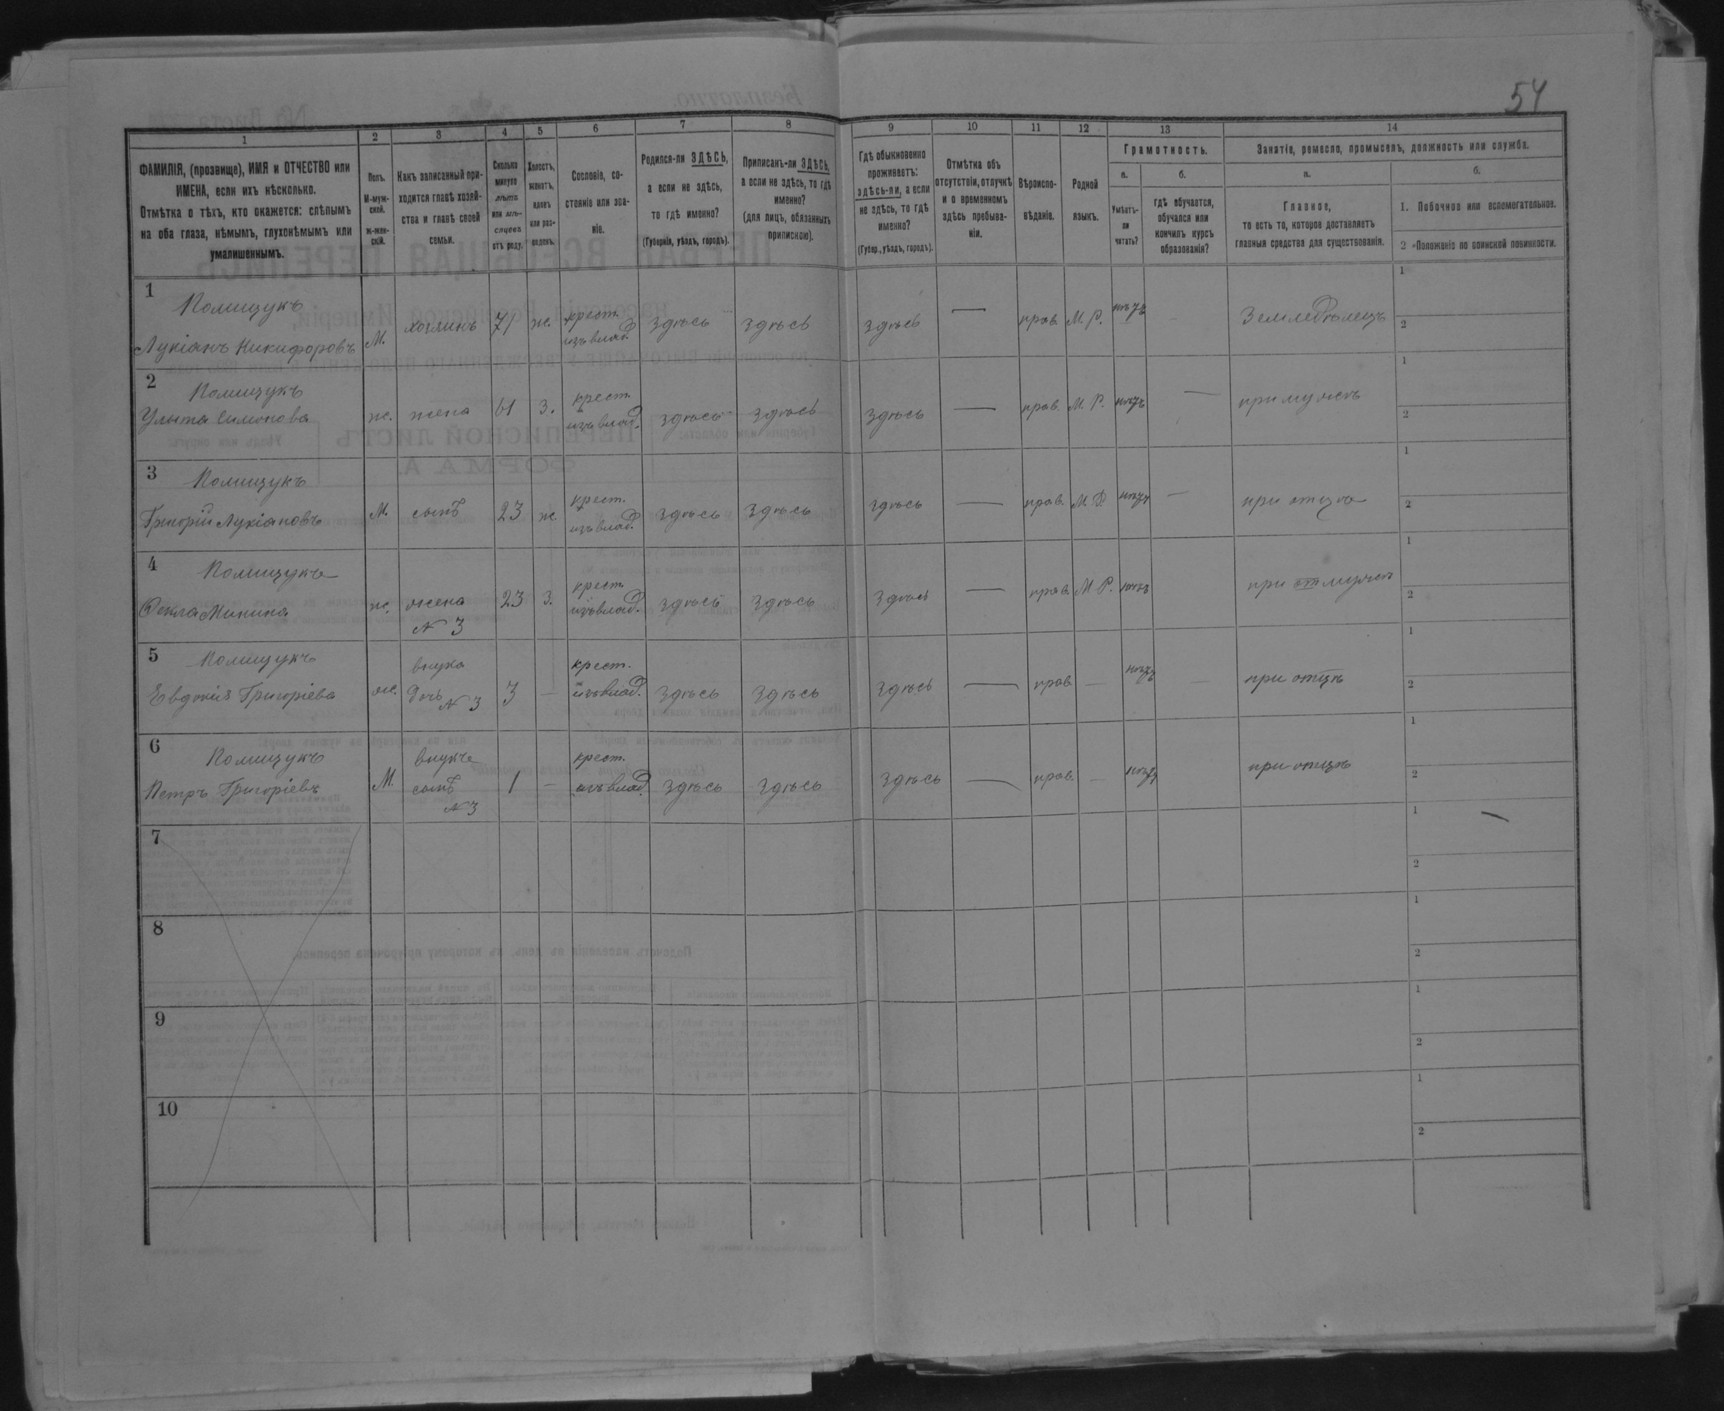 54
1 2 3 4 5 6 7 8 9 10 11 12 13 14
ФАМИЛІЯ, (прозвище), ИМЯ и ОТЧЕСТВО или
ИМЕНА, если ихъ нѣсколько.
Отмѣтка о тѣхъ, кто окажется: слѣпымъ
на оба глаза, нѣмымъ, глухонѣмымъ или
умалишеннымъ.
Полъ.
М-муж-
ской.
ж-жен-
скій.
Какъ записанный при-
ходится главѣ хозяй-
ства и главѣ своей
семьи.
Сколько
минуло
лѣтъ
или мѣ-
сяцевъ
отъ роду.
Холостъ,
женатъ,
вдовъ
или раз-
веденъ.
Сословіе, со-
стояніе или зва-
ніе.
Родился-ли ЗДѢСЬ,
а если не здѣсь,
то гдѣ именно?
(Губернія, уѣздъ, городъ).
Приписанъ-ли ЗДѢСЬ,
а если не здѣсь, то гдѣ
именно?
(для лицъ, обязанныхъ
припискою).
Гдѣ обыкновенно
проживаетъ:
здѣсь-ли, а если
не здѣсь, то гдѣ
именно?
(Губер., уѣздъ, городъ).
Отмѣтка объ
отсутствіи, отлучкѣ
и о временномъ
здѣсь пребыва-
ніи.
Вѣроиспо-
вѣданіе.
Родной
языкъ.
Грамотность.
а.
Умѣетъ-
ли
читать?
б.
гдѣ обучается,
обучался или
кончилъ курсъ
образованія?
Занятіе, ремесло, промыселъ, должность или служба.
а.
Главное,
то есть то, которое доставляетъ
главныя средства для существованія.
б.
1. Побочное или вспомогательное.
2 Положеніе по воинской повинности.
1 Полищукъ
Лукіанъ Никифоровъ М. хозяинъ 71 ж. крест. изъ влад. здѣсь здѣсь здѣсь — прав. М Р. нѣтъ Земледѣлецъ 1 2
2 Полищукъ
Улита Симонова ж. жена 61 з. крест. изъ влад. здѣсь здѣсь здѣсь — прав. М. Р. нѣтъ — при мужѣ 1 2
3 Полищукъ
Григорій Лукіановъ М. сынъ 23 ж. крест. изъ влад. здѣсь здѣсь здѣсь — прав. М. Р. нѣтъ — при отцѣ 1 2
4 Полищукъ
Фекла Минина ж. жена № 3 23 з. крест. изъ влад. здѣсь здѣсь здѣсь — прав. М. Р. нѣтъ при мужѣ 1 2
5 Полищукъ
Евдокія Григоріева ж. внука дочь № 3 3 — крест. изъ влад. здѣсь здѣсь здѣсь — прав. — нѣтъ — при отцѣ 1 2
6 Полищукъ
Петръ Григоріевъ М. внукъ сынъ № 3 1 — крест. изъ влад. здѣсь здѣсь здѣсь — прав. — нѣтъ при отцѣ 1 2
7 1 — 2
8 1 2
9 1 2
10 1 2